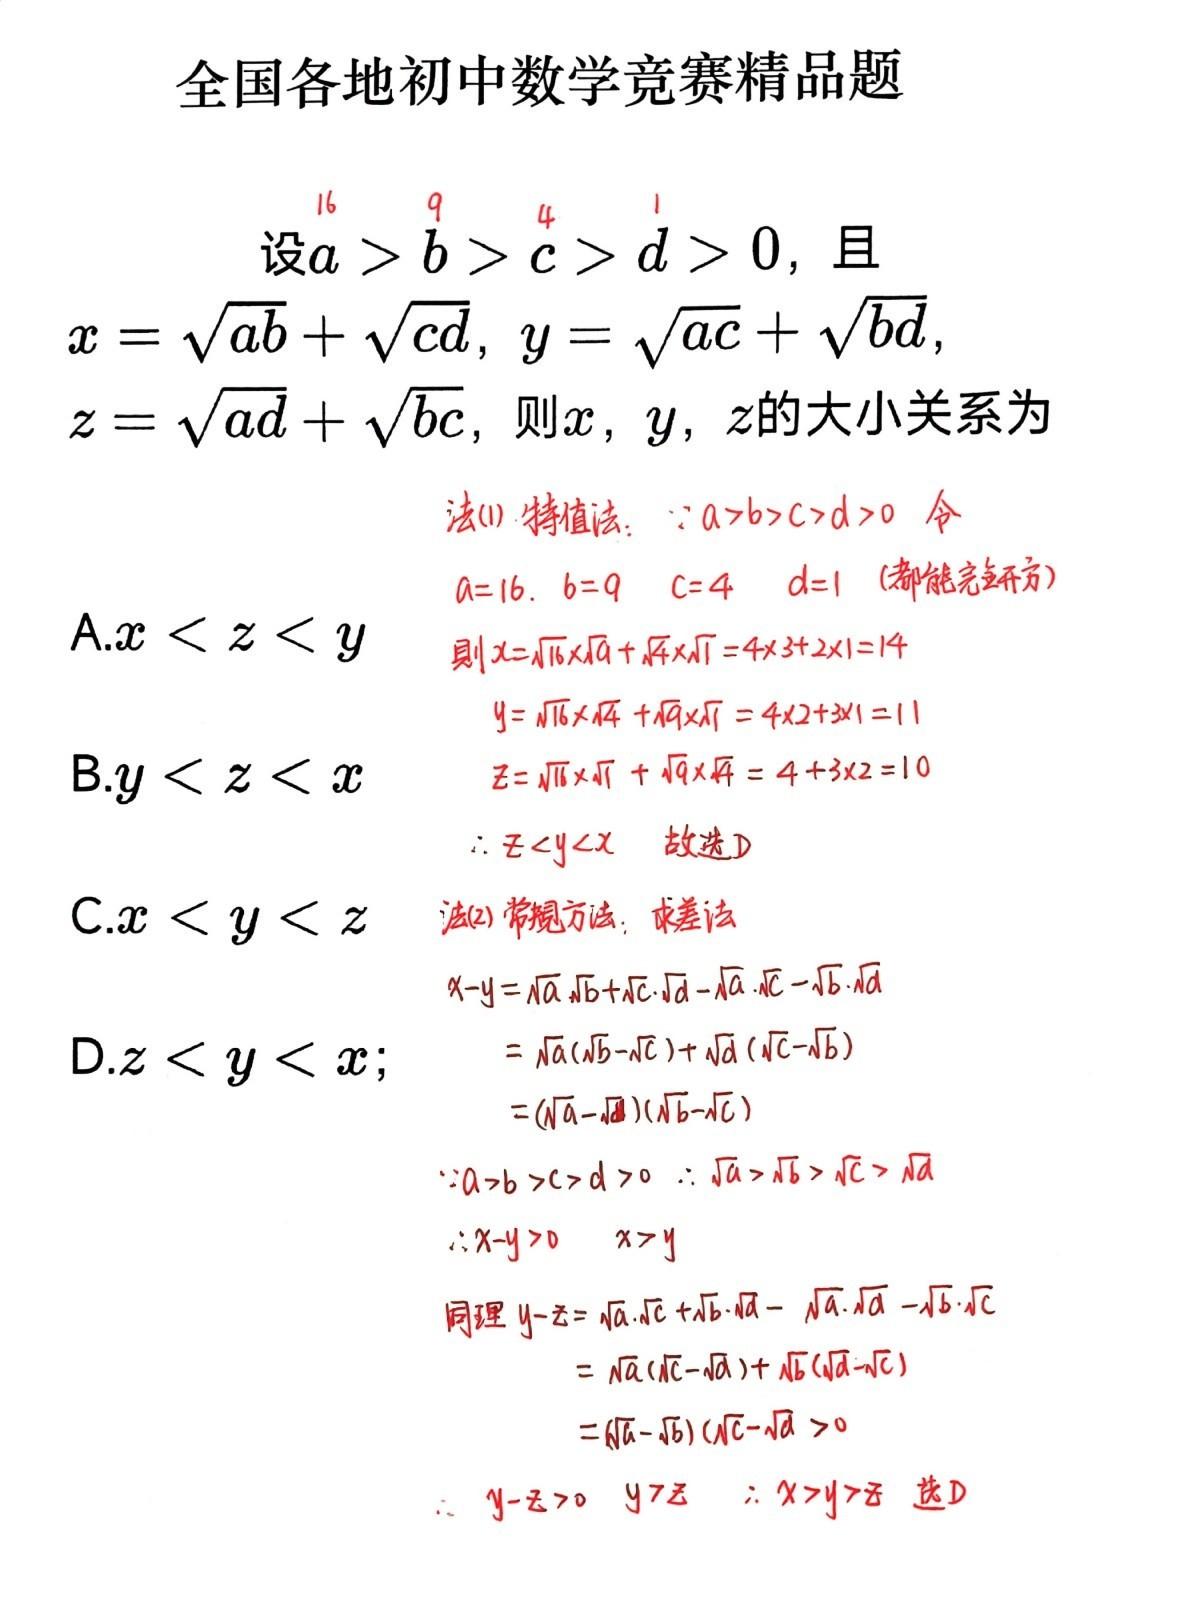 全国各地初中数学竞赛精品题
16 9 4 1
设a > b > c > d > 0，且
x = √ab + √cd，y = √ac + √bd，
z = √ad + √bc，则x，y，z的大小关系为
法(1) 特值法: ∵ a>b>c>d>0 令
a=16. b=9 c=4 d=1 (都能完全开方)
A.x < z < y
则x=√16×√9+√4×√1=4×3+2×1=14
y=√16×√4+√9×√1=4×2+3×1=11
B.y < z < x
z=√16×√1+√9×√4=4+3×2=10
∴ z<y<x 故选D
C.x < y < z
法(2) 常规方法: 求差法
x-y=√a.√b+√c.√d-√a.√c-√b.√d
D.z < y < x;
=√a(√b-√c)+√d(√c-√b)
=(√a-√d)(√b-√c)
∵a>b>c>d>0 ∴√a>√b>√c>√d
∴x-y>0 x>y
同理 y-z=√a.√c+√b.√d-√a.√d-√b.√c
=√a(√c-√d)+√b(√d-√c)
=(√a-√b)(√c-√d >0
∴ y-z>0 y>z ∴x>y>z 选D